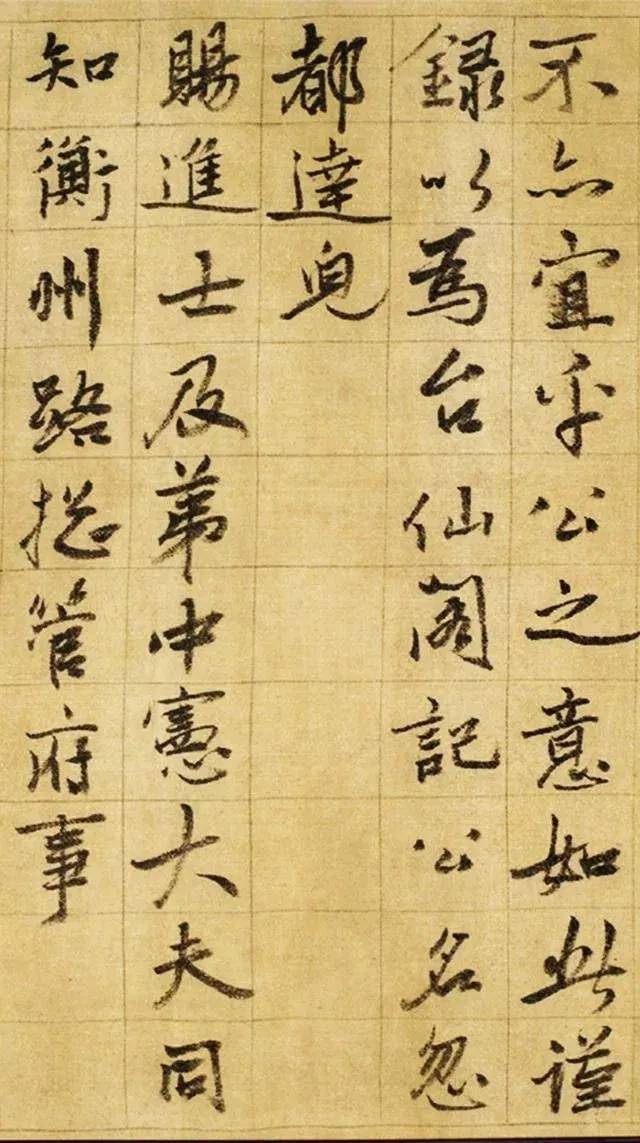 不亦宜乎公之意如此谨
録以為台仙阁記公名忽
都達兒
賜進士及弟中憲大夫同
知衡州路揔管府事